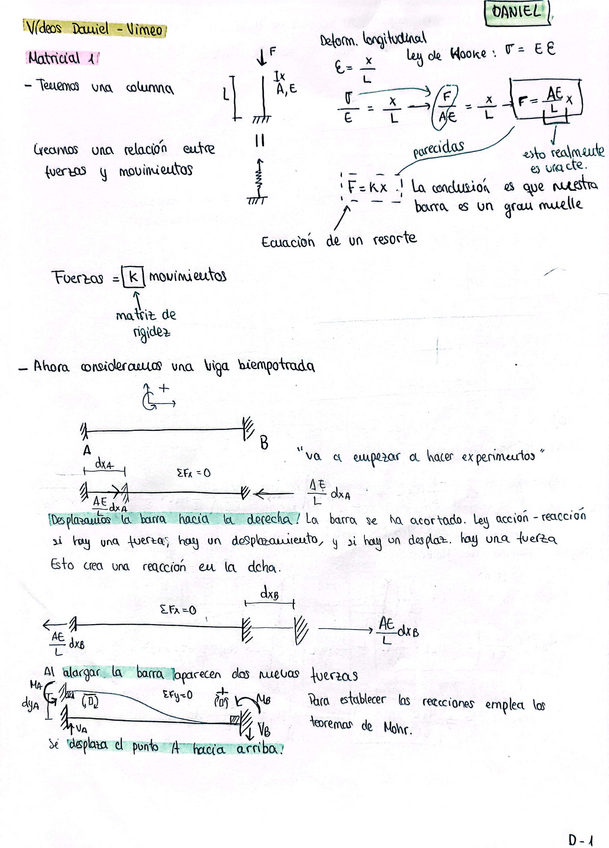 DANIEL
Vídeos Daniel - Vimeo
Matricial 1
- Tenemos una columna
L
F
Ix
A, E
Deform. longitudinal
ε = x/L
Ley de Hooke: σ = E ε
σ/E = x/L → F/AE = x/L → F = AE/L x
parecidas
esto realmente
es una cte.
Creamos una relación entre
fuerzas y movimientos
F = Kx
La conclusión es que nuestra
barra es un gran muelle
Ecuación de un resorte
Fuerzas = K movimientos
matriz de
rigidez
- Ahora consideramos una viga biempotrada
+
A
B
"va a empezar a hacer experimentos"
dxA
ΣFx = 0
AE/L dxA
AE/L dxA
Desplazamos la barra hacia la derecha! La barra se ha acortado. Ley acción-reacción
si hay una fuerza, hay un desplazamiento, y si hay un desplaz. hay una fuerza
Esto crea una reacción en la dcha.
dxB
ΣFx = 0
AE/L dxB
AE/L dxB
Al alargar la barra aparecen dos nuevas fuerzas
MA
dyA
ΣFy = 0
MB
VA
VB
Para establecer las reacciones emplea los
teoremas de Mohr.
Se desplaza el punto A hacia arriba!
D-1